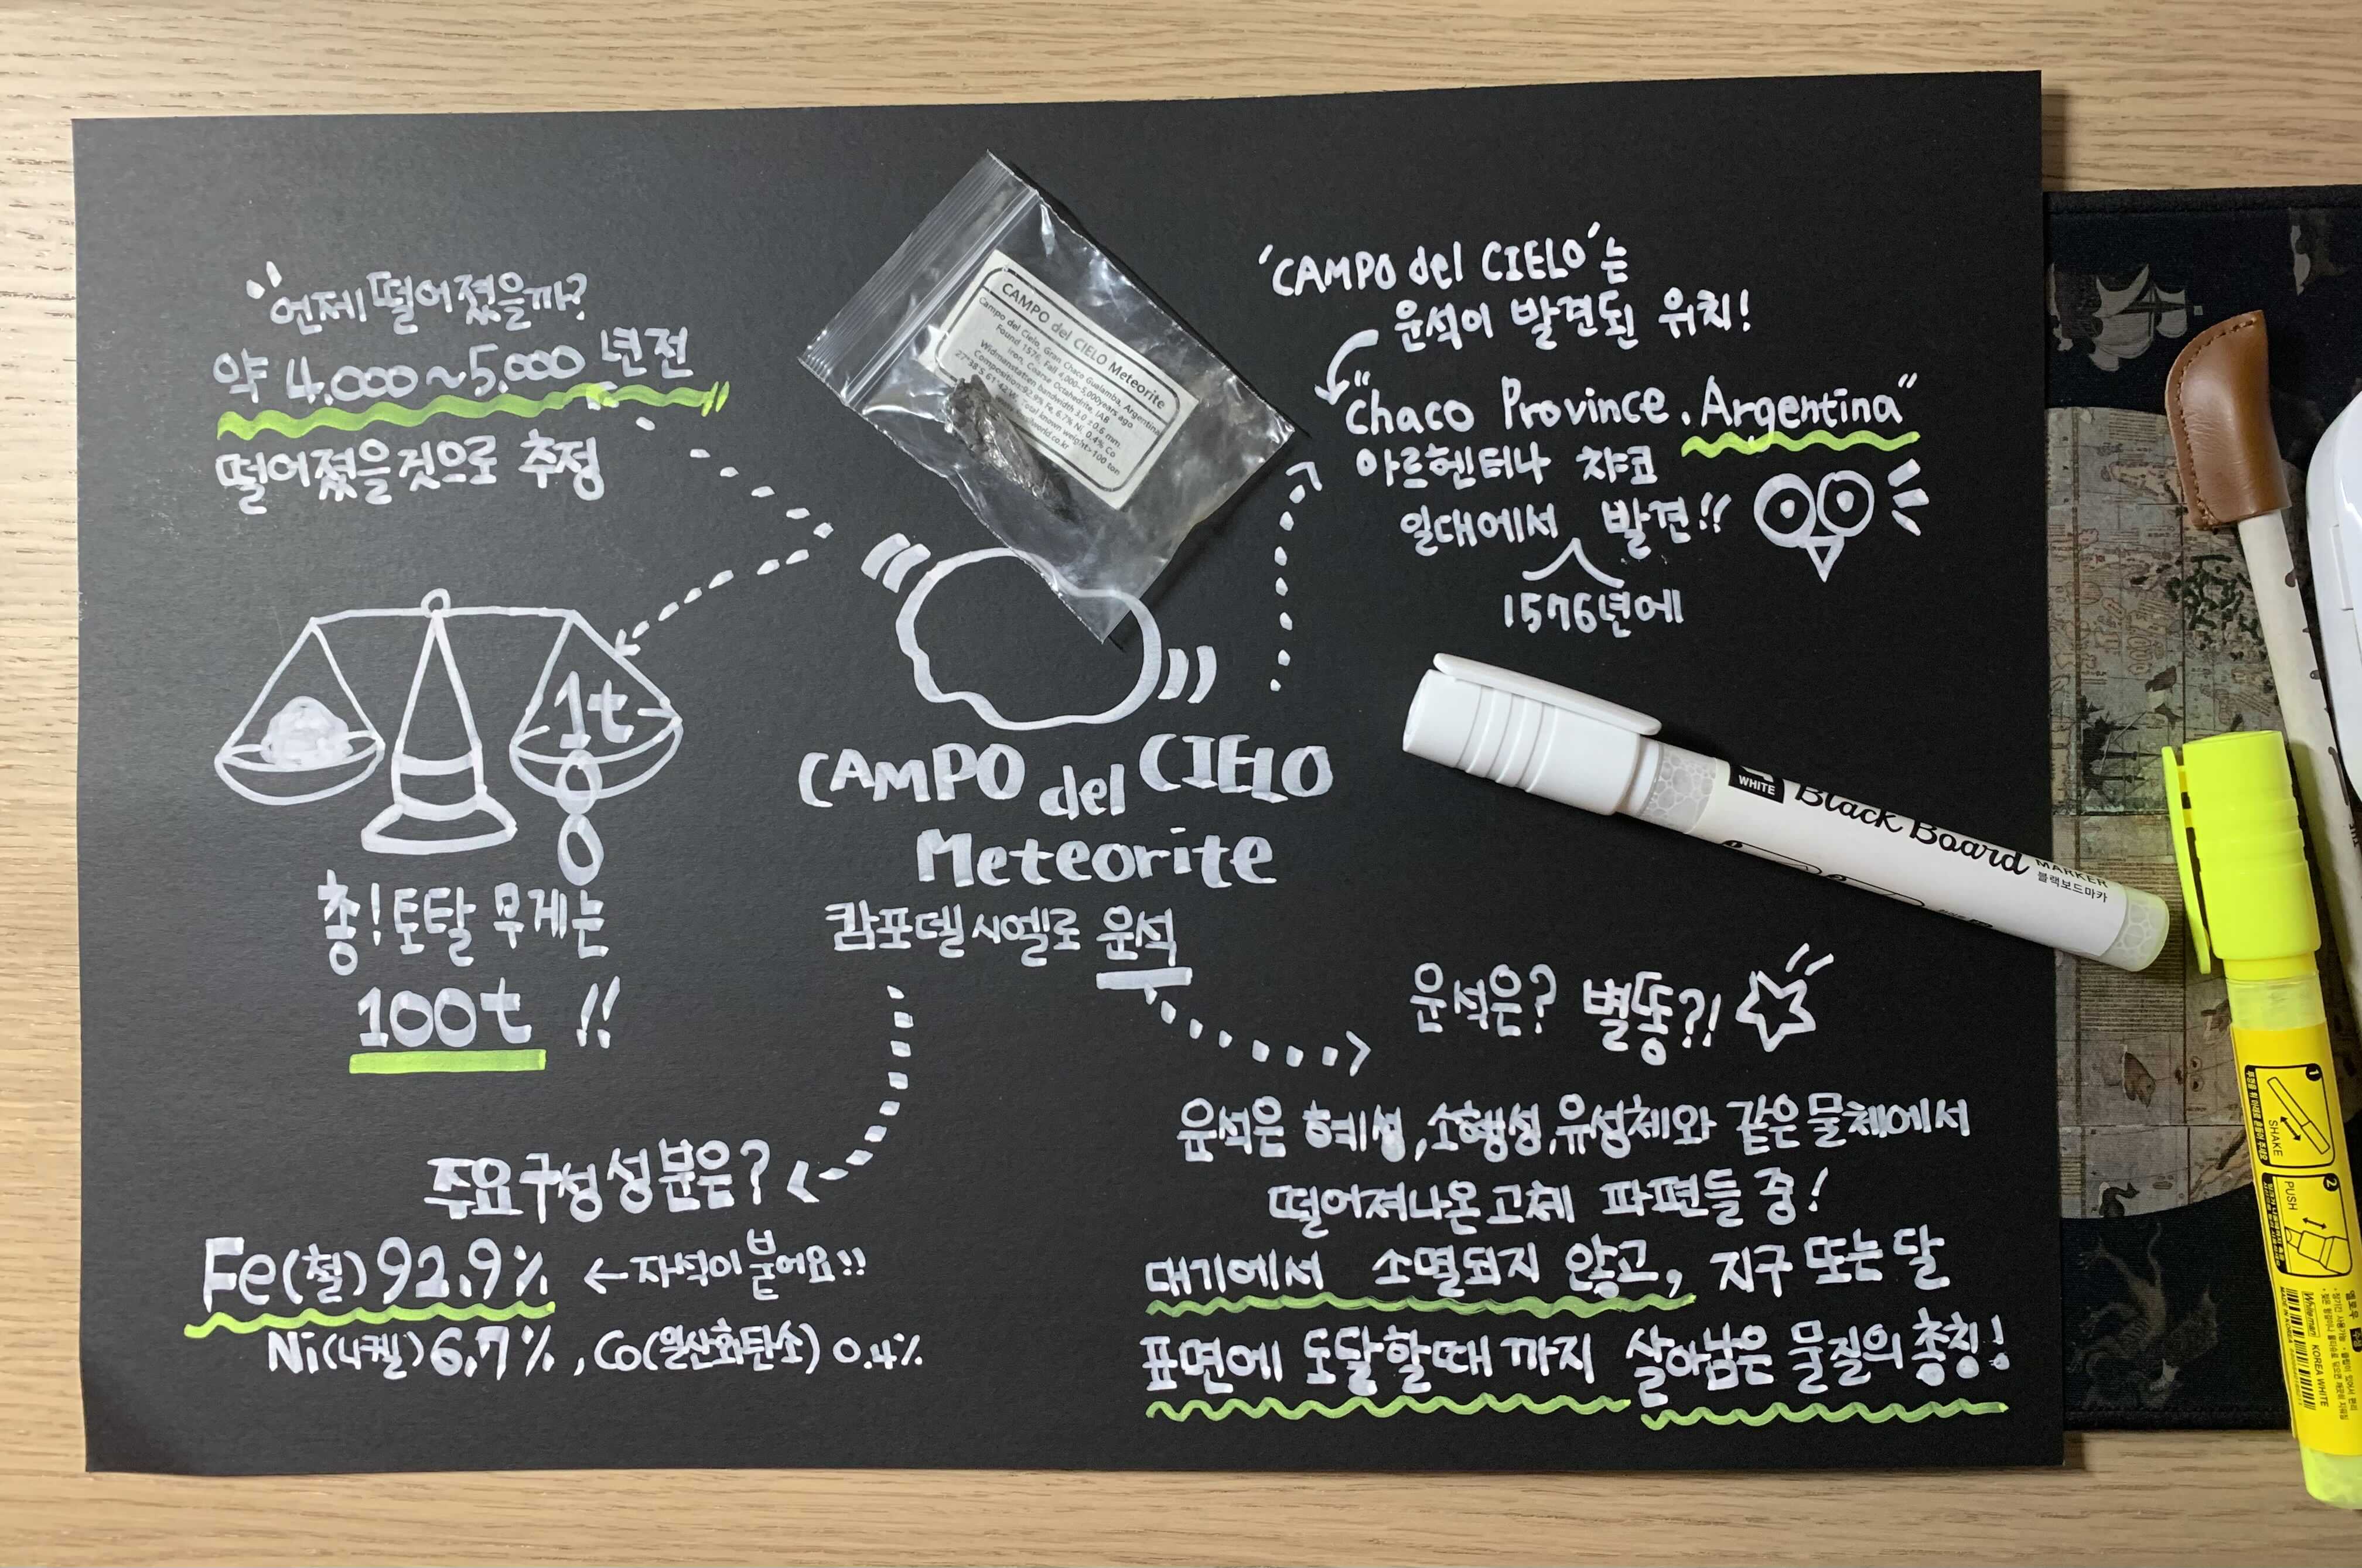 언제 떨어졌을까?
약 4,000~5,000 년전
떨어졌을것으로 추정
CAMPO del CIELO Meteorite
Campo del Cielo, Gran Chaco Gualamba, Argentina
Found 1576, Fall 4,000~5,000years ago
Iron, Coarse Octahedrite, IAB
Widmanstatten bandwidth 3.0 ±0.6 mm
Composition:92.9% Fe, 6.7% Ni, 0.4% Co
27°38'S 61°42'W, Total known weight>100 ton
'CAMPO del CIELO'는
운석이 발견된 위치!
"Chaco Province, Argentina"
아르헨티나 챠코
일대에서 발견!!
1576년에
1t
0
0
총! 토탈 무게는
100t !!
CAMPO del CIELO
Meteorite
캄포델시엘로 운석
WHITE
Black Board
MARKER
블랙보드마카
운석은? 별똥?!
운석은 혜성,소행성,유성체와 같은 물체에서
떨어져나온 고체 파편들 중!
대기에서 소멸되지 않고, 지구 또는 달
표면에 도달할때 까지 살아남은 물질의 총칭!
주요구성성분은?
Fe(철)92.9% ← 자석이 붙어요!!
Ni(니켈)6.7% , Co(일산화탄소) 0.4%
1
SHAKE
2
PUSH
Whiteman
KOREA WHITE
MADE IN KOREA